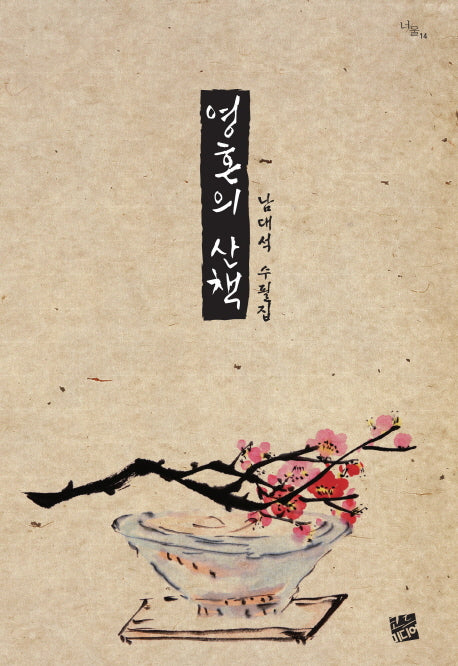 너울14
영혼의 산책
남대석 수필집
코드
미디어